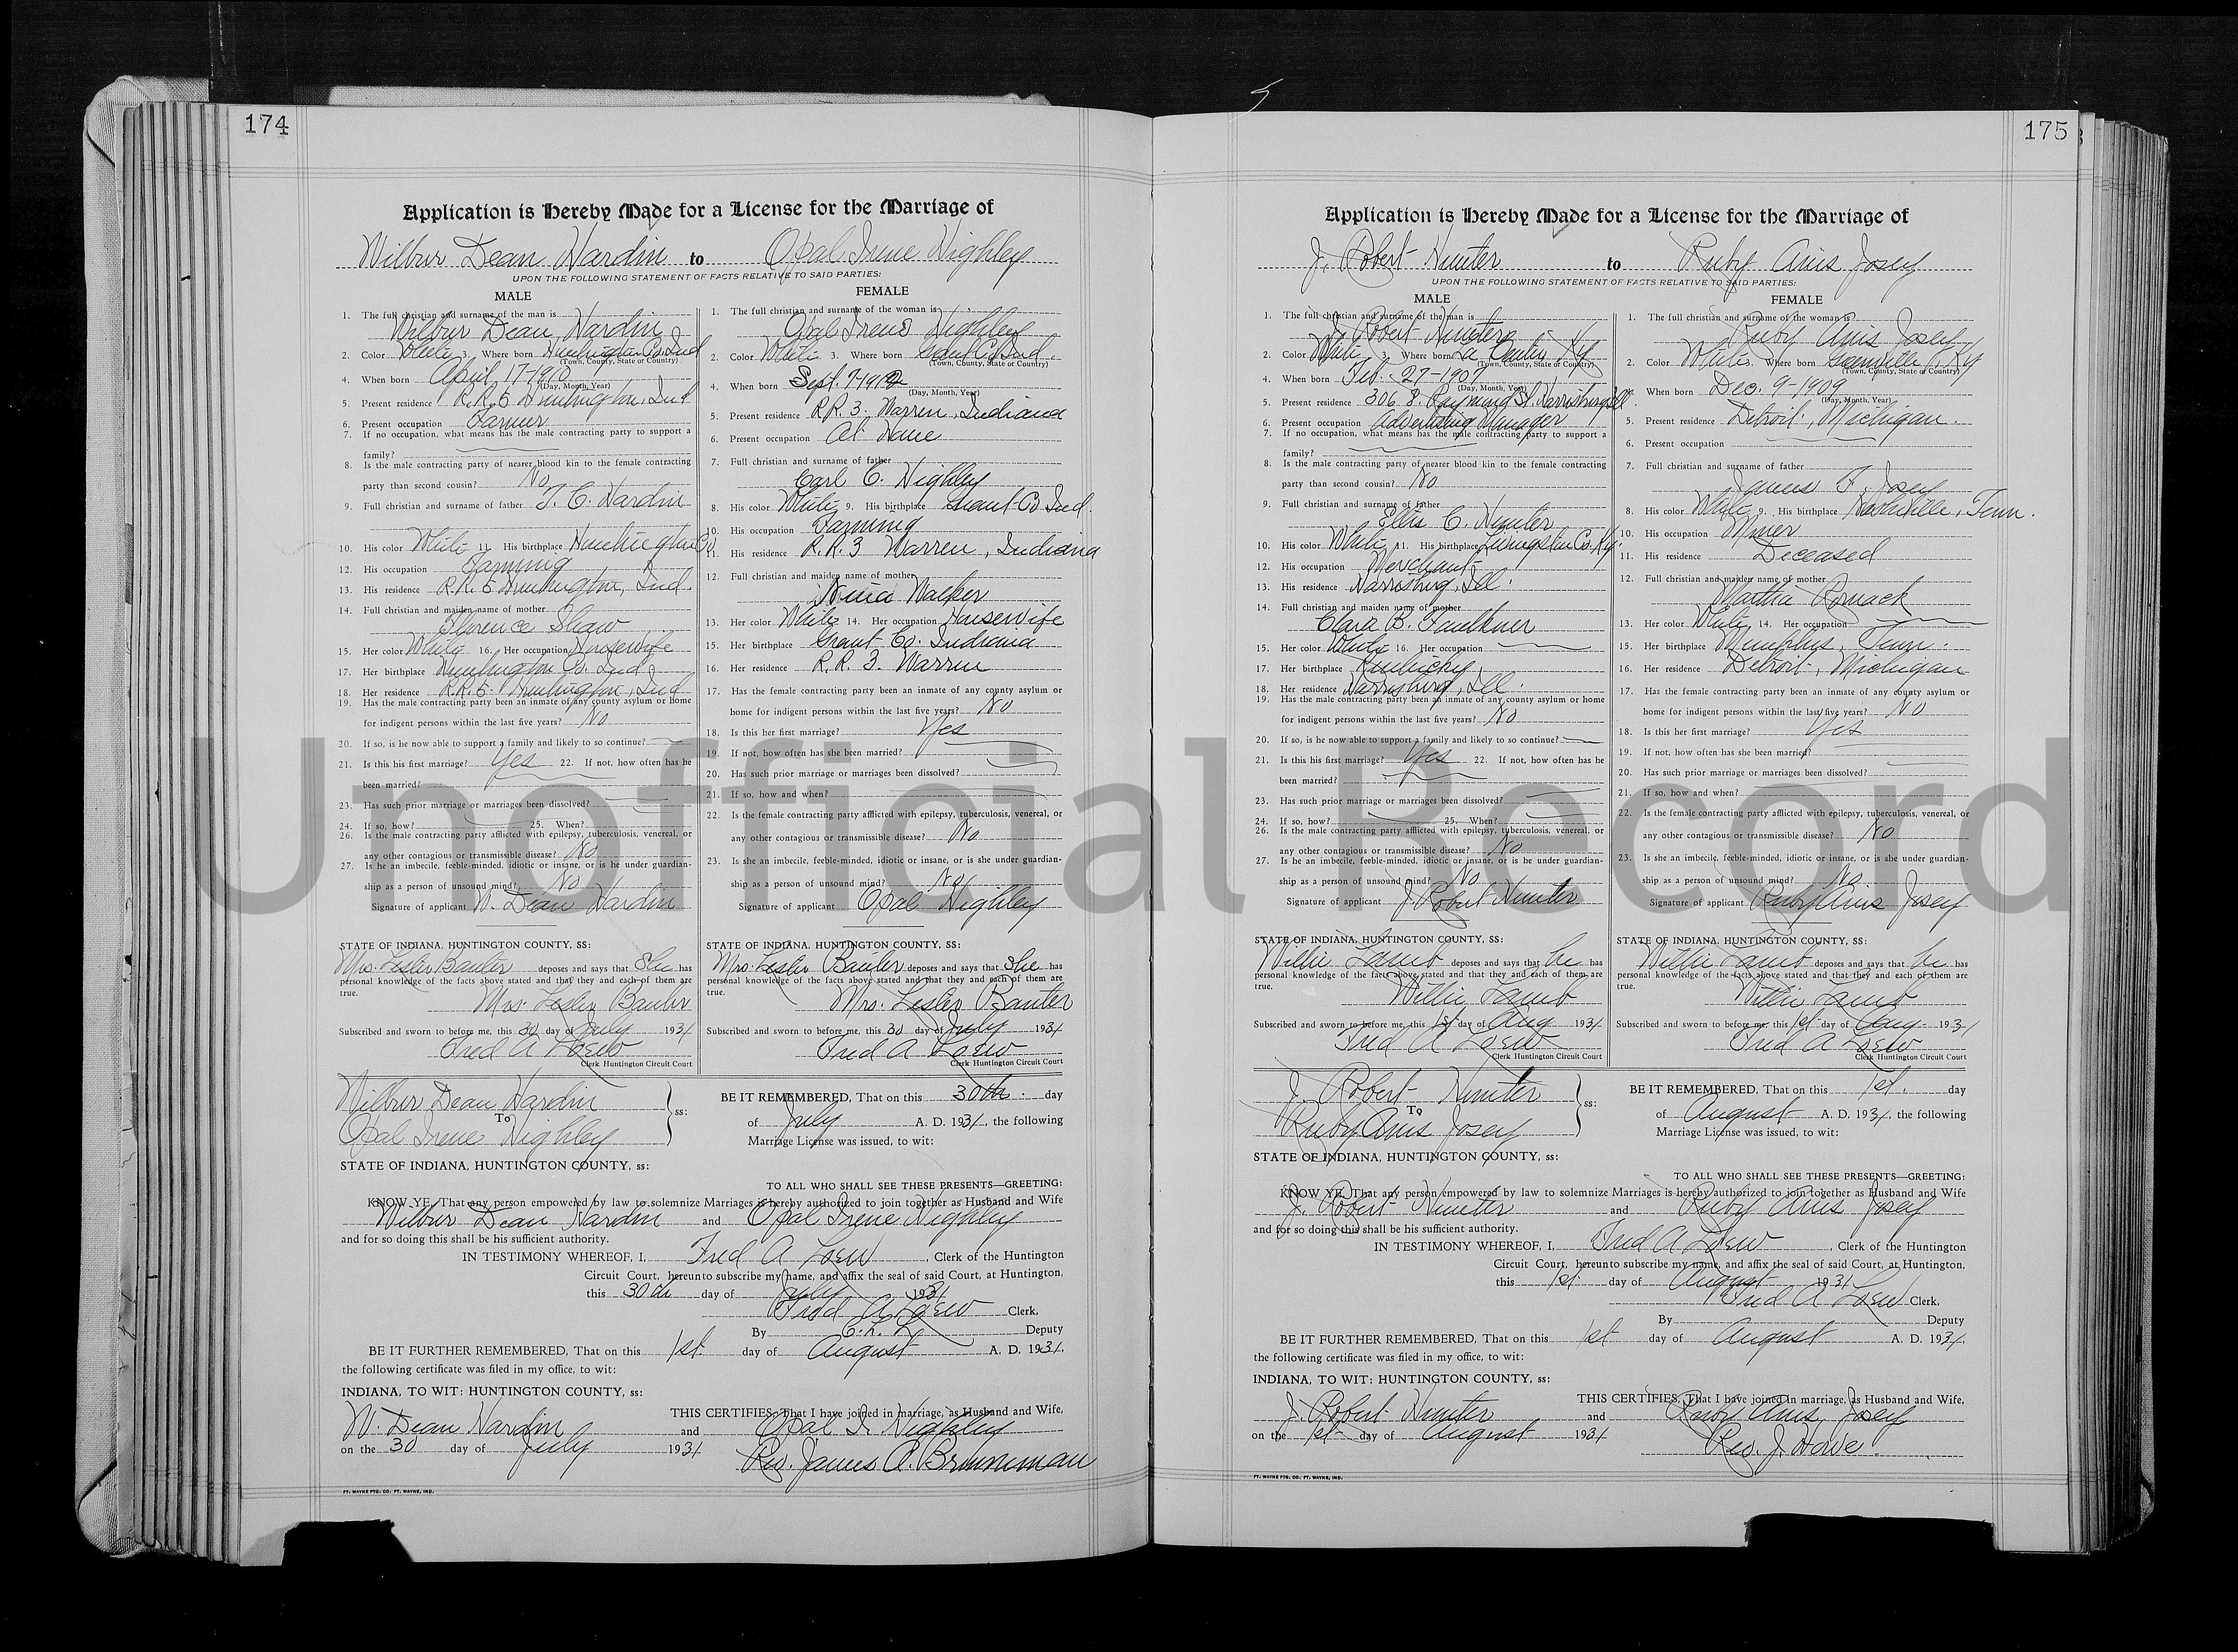 174
Application is Hereby Made for a License for the Marriage of
Wilbur Dean Hardin to Opal Irene Highley
UPON THE FOLLOWING STATEMENT OF FACTS RELATIVE TO SAID PARTIES:
MALE
1. The full christian and surname of the man is
Wilbur Dean Hardin
2. Color White 3. Where born Huntington Co. Ind
(Town, County, State or Country)
4. When born April 17-1910
(Day, Month, Year)
5. Present residence R.R. 5 Huntington, Ind
6. Present occupation Farmer
7. If no occupation, what means has the male contracting party to support a
family?
8. Is the male contracting party of nearer blood kin to the female contracting
party than second cousin? No
9. Full christian and surname of father T. C. Hardin
10. His color White 11. His birthplace Huntington Co
12. His occupation Farming
13. His residence R.R. 5 Huntington, Ind.
14. Full christian and maiden name of mother
Florence Shaw
15. Her color White 16. Her occupation Housewife
17. Her birthplace Huntington Co. Ind
18. Her residence R.R. 5- Huntington, Ind
19. Has the male contracting party been an inmate of any county asylum or home
for indigent persons within the last five years? No
20. If so, is he now able to support a family and likely to so continue?
21. Is this his first marriage? Yes 22. If not, how often has he
been married?
23. Has such prior marriage or marriages been dissolved?
24. If so, how? 25. When?
26. Is the male contracting party afflicted with epilepsy, tuberculosis, venereal, or
any other contagious or transmissible disease? No
27. Is he an imbecile, feeble-minded, idiotic or insane, or is he under guardian-
ship as a person of unsound mind? No
Signature of applicant W. Dean Hardin
STATE OF INDIANA, HUNTINGTON COUNTY, SS:
Mrs. Lesler Bauter deposes and says that she has
personal knowledge of the facts above stated and that they and each of them are
true.
Mrs. Lesler Bauter
Subscribed and sworn to before me, this 30 day of July 1931
Fred A Loew
Clerk Huntington Circuit Court
FEMALE
1. The full christian and surname of the woman is
Opal Irene Highley
2. Color White 3. Where born Grant Co Ind.
(Town, County, State or Country)
4. When born Sept. 7-1912
(Day, Month, Year)
5. Present residence R.R. 3. Warren, Indiana
6. Present occupation At Home
7. Full christian and surname of father
Carl C. Highley
8. His color White 9. His birthplace Grant Co Ind.
10. His occupation Farming
11. His residence R.R. 3 Warren, Indiana
12. Full christian and maiden name of mother
Walker
13. Her color White 14. Her occupation Housewife
15. Her birthplace Grant Co. Indiana
16. Her residence R.R. 3. Warren
17. Has the female contracting party been an inmate of any county asylum or
home for indigent persons within the last five years? No
18. Is this her first marriage? Yes
19. If not, how often has she been married?
20. Has such prior marriage or marriages been dissolved?
21. If so, how and when?
22. Is the female contracting party afflicted with epilepsy, tuberculosis, venereal, or
any other contagious or transmissible disease? No
23. Is she an imbecile, feeble-minded, idiotic or insane, or is she under guardian-
ship as a person of unsound mind? No
Signature of applicant Opal Highley
STATE OF INDIANA, HUNTINGTON COUNTY, SS:
Mrs. Lesler Bauter deposes and says that she has
personal knowledge of the facts above stated and that they and each of them are
true.
Mrs. Lesler Bauter
Subscribed and sworn to before me, this 30 day of July 1931
Fred A Loew
Clerk Huntington Circuit Court
Wilbur Dean Hardin
To
Opal Irene Highley
ss:
BE IT REMEMBERED, That on this 30th. day
of July A. D. 1931, the following
Marriage License was issued, to wit:
STATE OF INDIANA, HUNTINGTON COUNTY, ss:
TO ALL WHO SHALL SEE THESE PRESENTS—GREETING:
KNOW YE, That any person empowered by law to solemnize Marriages is hereby authorized to join together as Husband and Wife
Wilbur Dean Hardin and Opal Irene Highley
and for so doing this shall be his sufficient authority.
IN TESTIMONY WHEREOF, I, Fred A Loew, Clerk of the Huntington
Circuit Court, hereunto subscribe my name, and affix the seal of said Court, at Huntington,
this 30th day of July 1931
Fred A. Loew Clerk,
By C. L. L Deputy
BE IT FURTHER REMEMBERED, That on this 1st. day of August A. D. 1931,
the following certificate was filed in my office, to wit:
INDIANA, TO WIT: HUNTINGTON COUNTY, ss:
THIS CERTIFIES, That I have joined in marriage, as Husband and Wife,
W. Dean Hardin and Opal I. Highley
on the 30 day of July 1931
Rev. James A. Brenneman
FT. WAYNE PTG. CO. FT. WAYNE, IND.
175
Application is Hereby Made for a License for the Marriage of
J. Robert Hunter to Ruby Anis Josey
UPON THE FOLLOWING STATEMENT OF FACTS RELATIVE TO SAID PARTIES:
MALE
1. The full christian and surname of the man is
J. Robert Hunter
2. Color White 3. Where born La Center Ky
(Town, County, State or Country)
4. When born Feb. 27-1907
(Day, Month, Year)
5. Present residence 306 S. Raymond St. Harrisburg Ill
6. Present occupation Advertising Manager
7. If no occupation, what means has the male contracting party to support a
family?
8. Is the male contracting party of nearer blood kin to the female contracting
party than second cousin? No
9. Full christian and surname of father
Ellis C. Hunter
10. His color White 11. His birthplace Livingston Co. Ky.
12. His occupation Merchant
13. His residence Harrisburg, Ill.
14. Full christian and maiden name of mother
Clara B. Faulkner
15. Her color White 16. Her occupation
17. Her birthplace Kentucky
18. Her residence Harrisburg, Ill.
19. Has the male contracting party been an inmate of any county asylum or home
for indigent persons within the last five years? No
20. If so, is he now able to support a family and likely to so continue?
21. Is this his first marriage? Yes 22. If not, how often has he
been married?
23. Has such prior marriage or marriages been dissolved?
24. If so, how? 25. When?
26. Is the male contracting party afflicted with epilepsy, tuberculosis, venereal, or
any other contagious or transmissible disease? No
27. Is he an imbecile, feeble-minded, idiotic or insane, or is he under guardian-
ship as a person of unsound mind? No
Signature of applicant J. Robert Hunter
STATE OF INDIANA, HUNTINGTON COUNTY, SS:
Willie Lamb deposes and says that he has
personal knowledge of the facts above stated and that they and each of them are
true.
Willie Lamb
Subscribed and sworn to before me, this 1st day of Aug 1931
Fred A Loew
Clerk Huntington Circuit Court
FEMALE
1. The full christian and surname of the woman is
Ruby Anis Josey
2. Color White 3. Where born Greenville, Ky
(Town, County, State or Country)
When born Dec. 9-1909
(Day, Month, Year)
5. Present residence Detroit, Michigan.
6. Present occupation
7. Full christian and surname of father
James F. Josey
8. His color White 9. His birthplace Nashville, Tenn.
10. His occupation Miner
11. His residence Deceased
12. Full christian and maiden name of mother
Martha Romack
13. Her color White 14. Her occupation
15. Her birthplace Memphis, Tenn.
16. Her residence Detroit, Michigan
17. Has the female contracting party been an inmate of any county asylum or
home for indigent persons within the last five years? No
18. Is this her first marriage? Yes
19. If not, how often has she been married?
20. Has such prior marriage or marriages been dissolved?
21. If so, how and when?
22. Is the female contracting party afflicted with epilepsy, tuberculosis, venereal, or
any other contagious or transmissible disease? No
23. Is she an imbecile, feeble-minded, idiotic or insane, or is she under guardian-
ship as a person of unsound mind? No
Signature of applicant Ruby Anis Josey
STATE OF INDIANA, HUNTINGTON COUNTY, SS:
Willie Lamb deposes and says that he has
personal knowledge of the facts above stated and that they and each of them are
true.
Willie Lamb
Subscribed and sworn to before me, this 1st day of Aug. 1931
Fred A Loew
Clerk Huntington Circuit Court
J. Robert Hunter
To
Ruby Anis Josey
ss:
BE IT REMEMBERED, That on this 1st. day
of August A. D. 1931, the following
Marriage License was issued, to wit:
STATE OF INDIANA, HUNTINGTON COUNTY, ss:
TO ALL WHO SHALL SEE THESE PRESENTS—GREETING:
KNOW YE, That any person empowered by law to solemnize Marriages is hereby authorized to join together as Husband and Wife
J. Robert Hunter and Ruby Anis Josey
and for so doing this shall be his sufficient authority.
IN TESTIMONY WHEREOF, I, Fred A Loew, Clerk of the Huntington
Circuit Court, hereunto subscribe my name, and affix the seal of said Court, at Huntington,
this 1st. day of August 1931
Fred A Loew Clerk,
By Deputy
BE IT FURTHER REMEMBERED, That on this 1st day of August A. D. 1931,
the following certificate was filed in my office, to wit:
INDIANA, TO WIT: HUNTINGTON COUNTY, ss:
THIS CERTIFIES, That I have joined in marriage, as Husband and Wife,
J. Robert Hunter and Ruby Anis Josey
on the 1st day of August 1931
Rev. J. Howe.
FT. WAYNE PTG. CO. FT. WAYNE, IND.
Unofficial Record